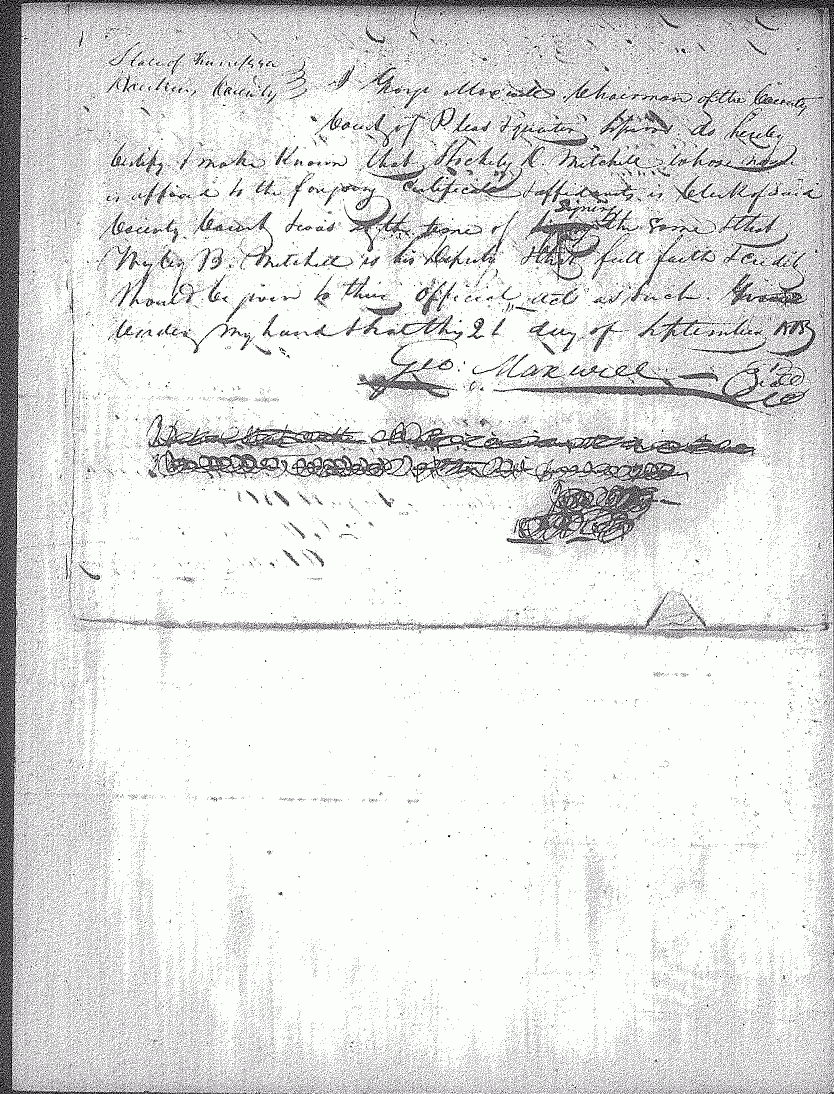 State of Tennessee
Hawkins County } I George Maxwell Chairman of the County
Court of Pleas & quarter Sessions do hereby
Certify & make Known that Stockely D. Mitchell whose name
is affixed to the forgoing Certificate & affidavits is Clerk of said
County Court & was at the time of signing the same & that
Wyley B. Mitchell is his Deputy & that full faith & credit
Should be given to their official acts as such. Given
under my hand & that this 21 day of September
Geo: Maxwell